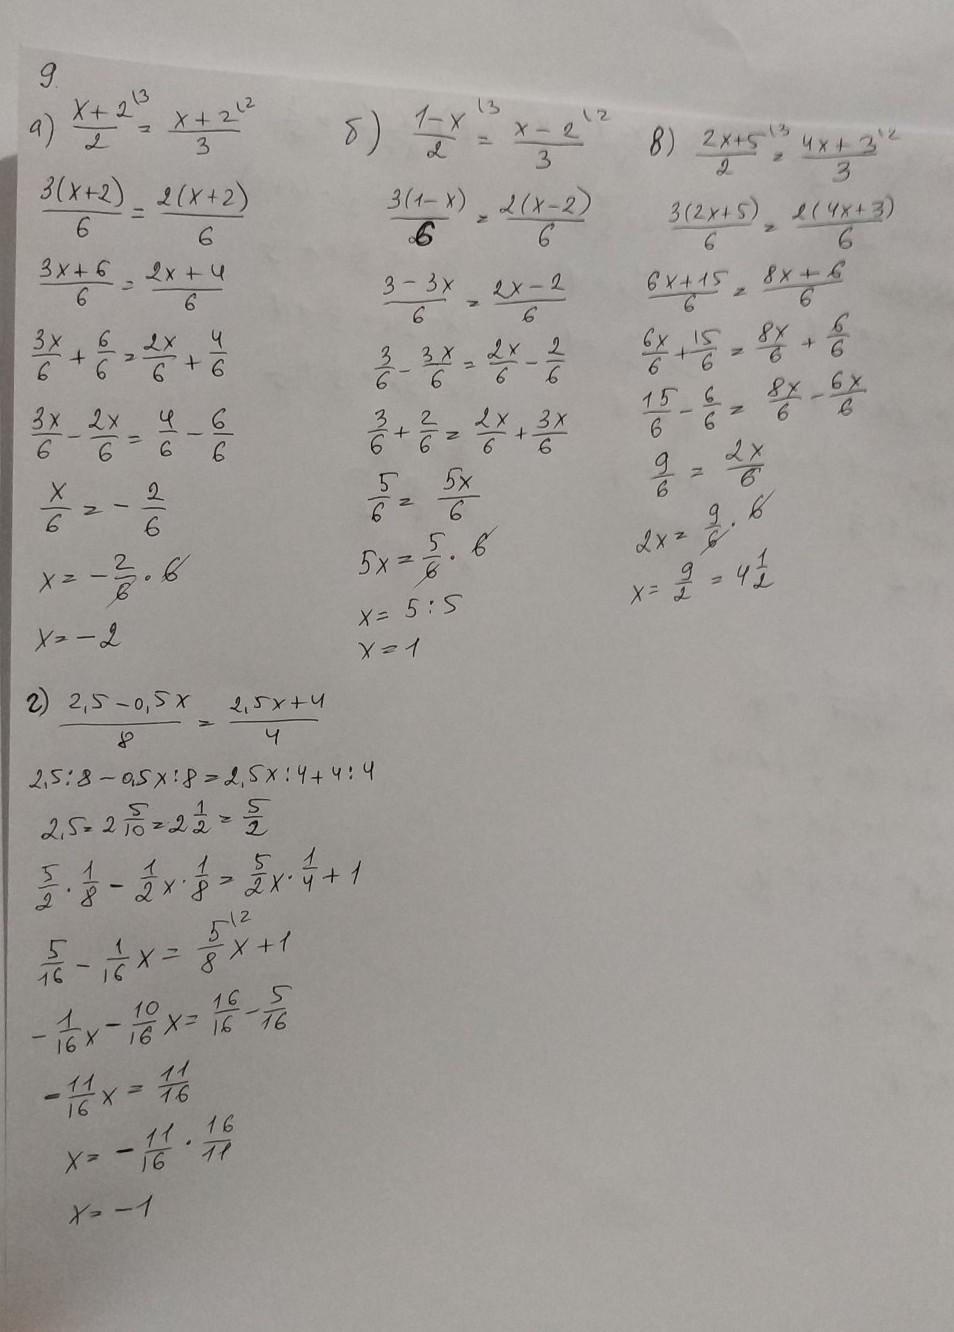 9.
а) (x+2)/2 \3 = (x+2)/3 \2
3(x+2)/6 = 2(x+2)/6
(3x+6)/6 = (2x+4)/6
3x/6 + 6/6 = 2x/6 + 4/6
3x/6 - 2x/6 = 4/6 - 6/6
x/6 = - 2/6
x = - 2/6 · 6
x = - 2
б) (1-x)/2 \3 = (x-2)/3 \2
3(1-x)/6 = 2(x-2)/6
(3-3x)/6 = (2x-2)/6
3/6 - 3x/6 = 2x/6 - 2/6
3/6 + 2/6 = 2x/6 + 3x/6
5/6 = 5x/6
5x = 5/6 · 6
x = 5 : 5
x = 1
в) (2x+5)/2 \3 = (4x+3)/3 \2
3(2x+5)/6 = 2(4x+3)/6
(6x+15)/6 = (8x+6)/6
6x/6 + 15/6 = 8x/6 + 6/6
15/6 - 6/6 = 8x/6 - 6x/6
9/6 = 2x/6
2x = 9/6 · 6
x = 9/2 = 4 1/2
г) (2,5-0,5x)/8 = (2,5x+4)/4
2,5:8 - 0,5x:8 = 2,5x:4 + 4:4
2,5 = 2 5/10 = 2 1/2 = 5/2
5/2 · 1/8 - 1/2 x · 1/8 = 5/2 x · 1/4 + 1
5/16 - 1/16 x = 5/8 \2 x + 1
- 1/16 x - 10/16 x = 16/16 - 5/16
- 11/16 x = 11/16
x = - 11/16 · 16/11
x = - 1